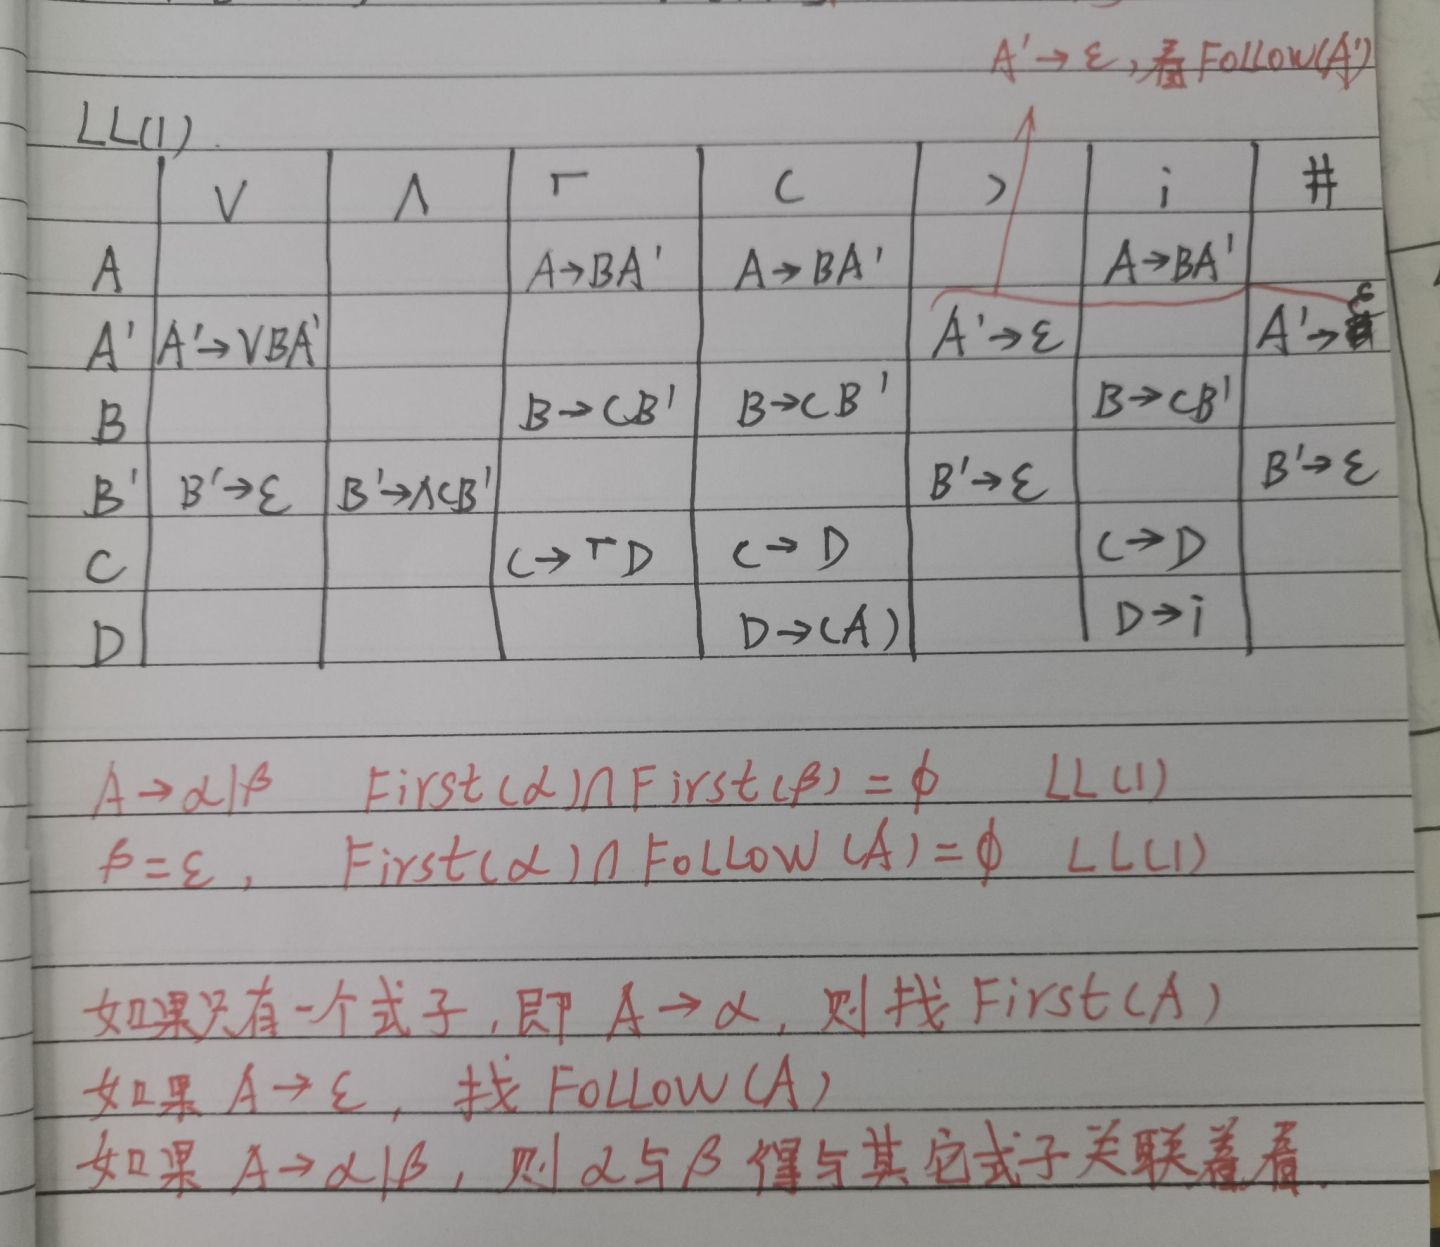 A'→ε,看Follow(A')
LL(1).
∨ ∧ ┌ ( ) i #
A A→BA' A→BA' A→BA'
A' A'→∨BA' A'→ε A'→ε
B B→CB' B→CB' B→CB'
B' B'→ε B'→∧CB' B'→ε B'→ε
C C→┌D C→D C→D
D D→(A) D→i
A→α|β First(α)∩First(β)=ϕ LL(1)
β=ε, First(α)∩FOLLOW(A)=ϕ LL(1)
如果只有一个式子,即A→α,则找First(A)
如果A→ε,找FOLLOW(A)
如果A→α|β,则α与β得与其它式子关联着看.